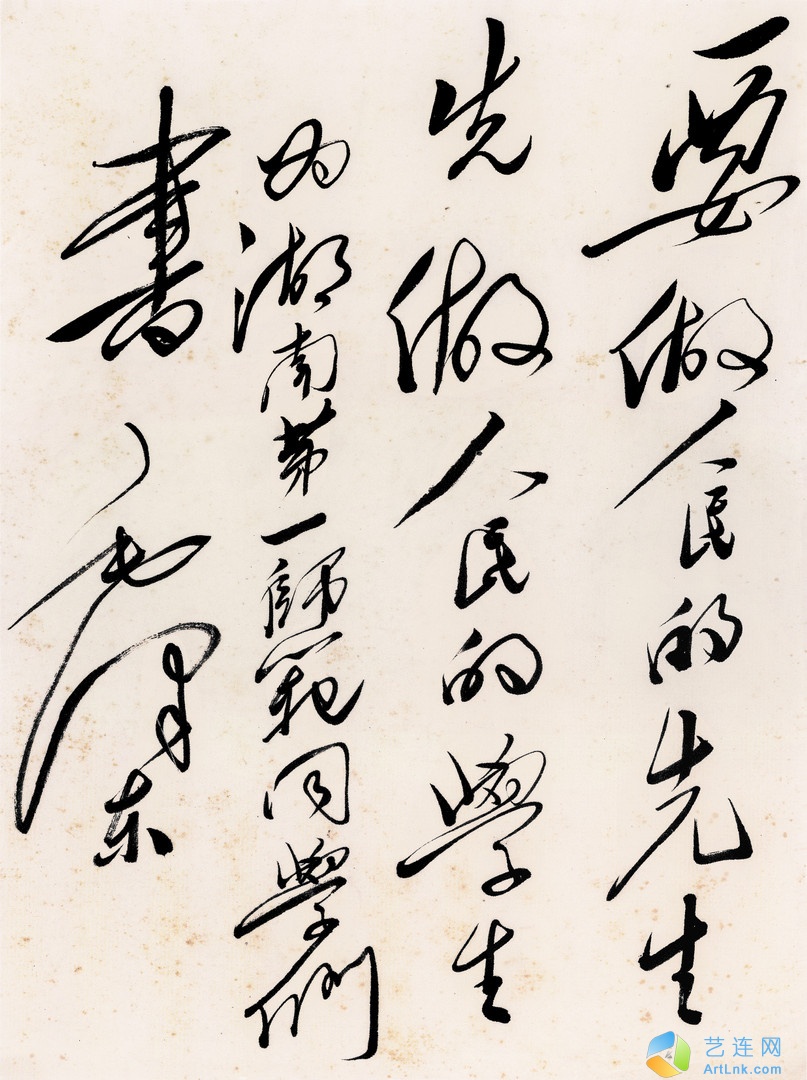 要做人民的先生
先做人民的學生
为湖南第一師範同學们
書
毛澤东
艺连网
ArtLnk.com